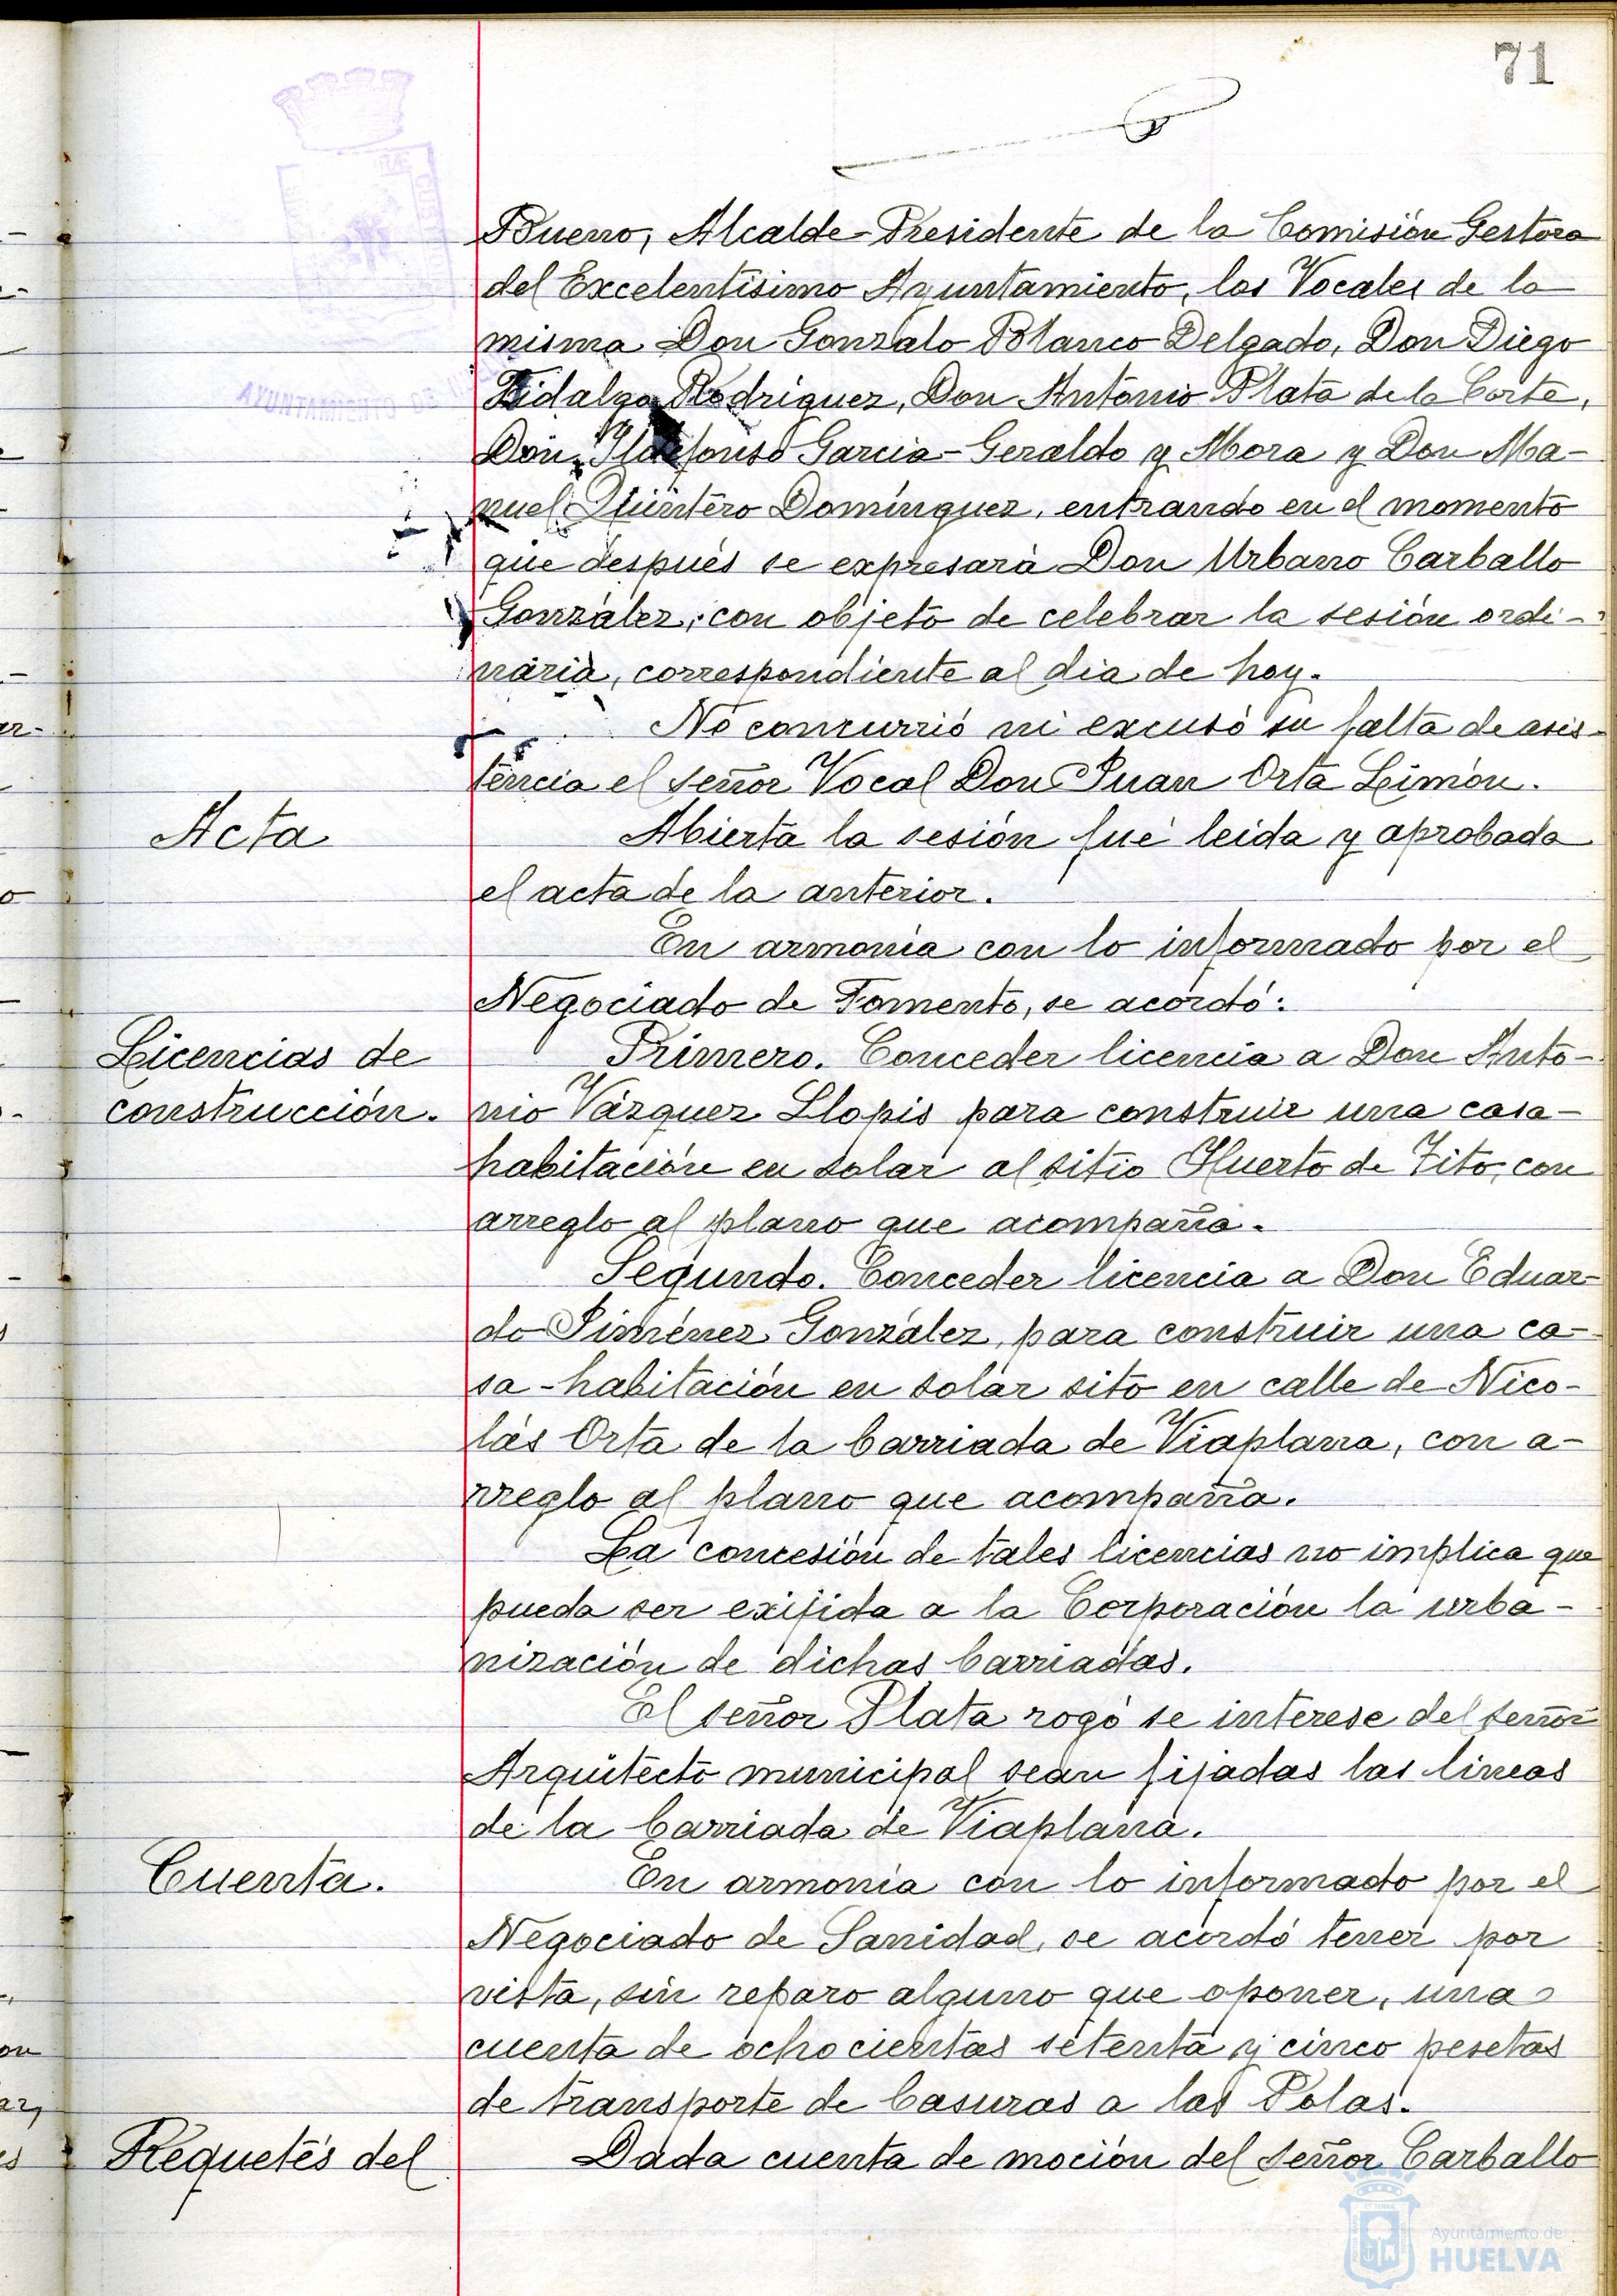 71
Bueno, Alcalde-Presidente de la Comisión Gestora
del Excelentísimo Ayuntamiento, los Vocales de la
misma Don Gonzalo Blanco Delgado, Don Diego
Fidalgo Rodríguez, Don Antonio Plata de la Corte,
Don Ildefonso García-Geraldo y Mora y Don Ma-
nuel Quintero Domínguez, entrando en el momento
que después se expresará Don Urbano Carballo
González, con objeto de celebrar la sesión ordi-
naria, correspondiente al día de hoy.
No concurrió ni excusó su falta de asis-
tencia el señor Vocal Don Juan Orta Limón.
Acta
Abierta la sesión fué leida y aprobada
el acta de la anterior.
En armonía con lo informado por el
Negociado de Fomento, se acordó:
Licencias de
construcción.
Primero. Conceder licencia a Don Anto-
nio Vázquez Llopis para construir una casa-
habitación en solar al sitio Huerto de Tito, con
arreglo al plano que acompaña.
Segundo. Conceder licencia a Don Eduar-
do Jiménez González, para construir una ca-
sa-habitación en solar sito en calle de Nico-
lás Orta de la barriada de Viaplana, con a-
rreglo al plano que acompaña.
La concesión de tales licencias no implica que
pueda ser exijida a la Corporación la urba-
nización de dichas barriadas.
El señor Plata rogó se interese del señor
Arquitecto municipal sean fijadas las líneas
de la barriada de Viaplana.
Cuenta.
En armonía con lo informado por el
Negociado de Sanidad, se acordó tener por
vista, sin reparo alguno que oponer, una
cuenta de ochocientas setenta y cinco pesetas
de transporte de basuras a las Polas.
Requetés del
Dada cuenta de moción del señor Carballo
AYUNTAMIENTO DE
Ayuntamiento de
HUELVA